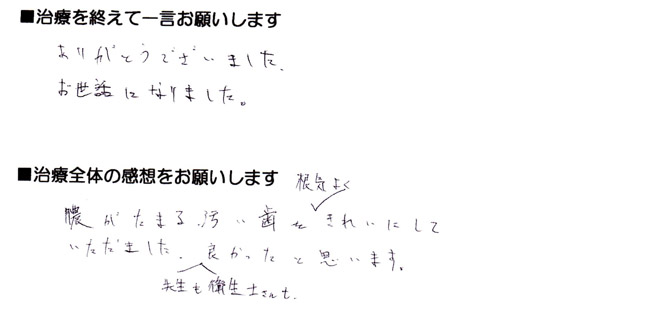 ■治療を終えて一言お願いします
ありがとうございました.
お世話になりました。
■治療全体の感想をお願いします
根気よく
膿がたまる汚い歯をきれいにして
いただました. 良かったと思います。
先生も衛生士さんも.